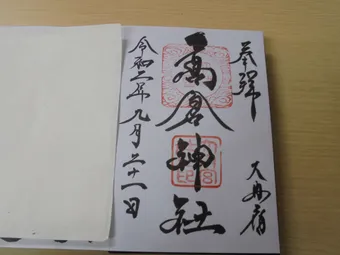 奉拝
大丹宿
高倉神社
令和二年九月二十一日